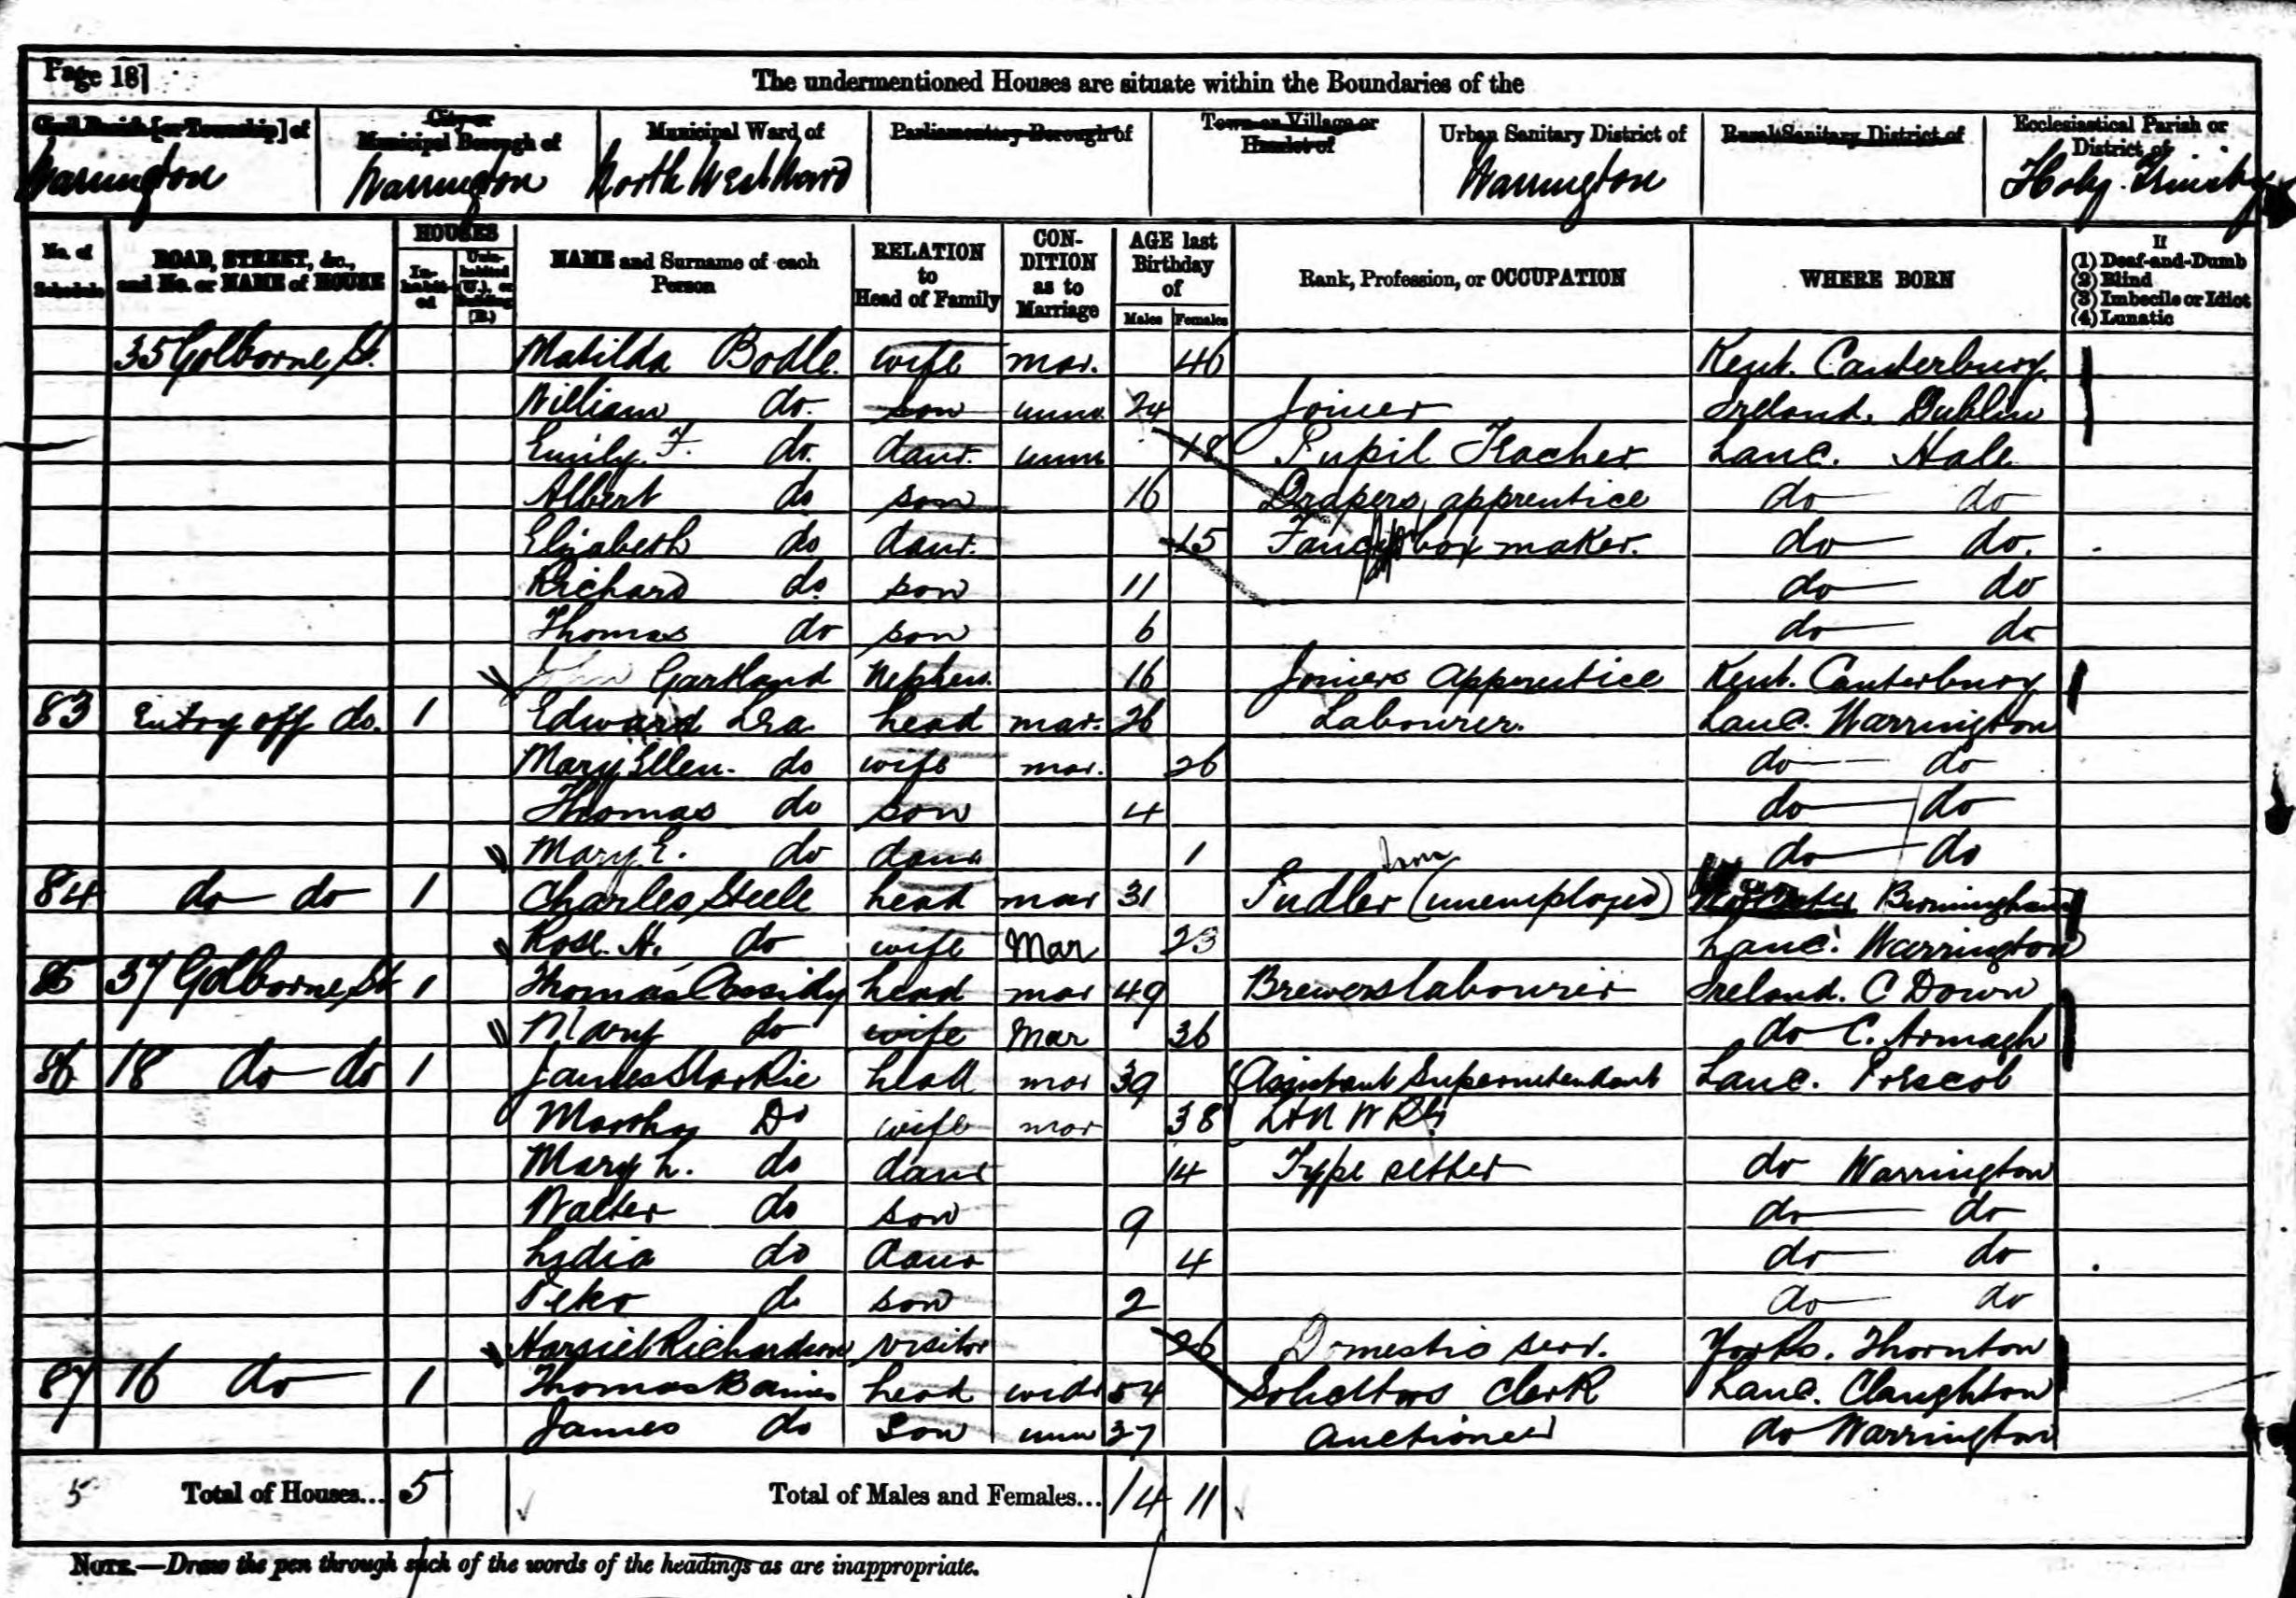 Page 18]
The undermentioned Houses are situate within the Boundaries of the
Civil Parish [or Township] of City or Municipal Borough of Municipal Ward of Parliamentary Borough of Town or Village or Hamlet of Urban Sanitary District of Rural Sanitary District of Ecclesiastical Parish or District of
Warrington Warrington North West Ward Warrington Holy Trinity
No. of Schedule ROAD, STREET, &c., and No. or NAME of HOUSE HOUSES In-habit-ed Unin-habited (U.), or Building (B.) NAME and Surname of each Person RELATION to Head of Family CON-DITION as to Marriage AGE last Birthday of Males Females Rank, Profession, or OCCUPATION WHERE BORN If (1) Deaf-and-Dumb (2) Blind (3) Imbecile or Idiot (4) Lunatic
35 Golborne St. Matilda Bodle. wife mar. 46 Kent. Canterbury
William do. son unm. 24 Joiner Ireland. Dublin
Emily F. do. daur. unm 18 Pupil Teacher Lanc. Hale
Albert do son 16 Drapers apprentice do do
Elizabeth do daur. 15 Fancy box maker. do do.
Richard do. son 11 do do
Thomas do son 6 do do
John Gartland Nephew. 16 Joiners Apprentice Kent. Canterbury
83 Entry off do. 1 Edward Lea head mar. 26 Labourer. Lanc. Warrington
Mary Ellen. do wife mar. 26 do do
Thomas do son 4 do do
Mary E. do daur 1 do do
84 do do 1 Charles Steele head mar 31 Iron Pudler (unemployed) Birmingham
Rose H. do wife Mar 23 Lanc. Warrington
85 37 Golborne St 1 Thomas Cassidy head mar 49 Brewers labourer Ireland. C Down
Mary do wife Mar 36 do C. Armagh
86 18 do do 1 James Starkie head mar 39 Assistant Superintendant Lanc. Prescot
Martha Do wife mar 38 L & N W Ry
Mary L. do daur 14 Type setter do Warrington
Walter do son 9 do do
Lydia do daur 4 do do
Peter do son 2 do do
Harriet Richardson visitor 26 Domestic serv. Yorks. Thornton
87 16 do 1 Thomas Baines head widr 54 Solicitors Clerk Lanc. Claughton
James do Son unm 27 Auctioneer do Warrington
5 Total of Houses... 5 Total of Males and Females... 14 11
NOTE.—Draw the pen through such of the words of the headings as are inappropriate.